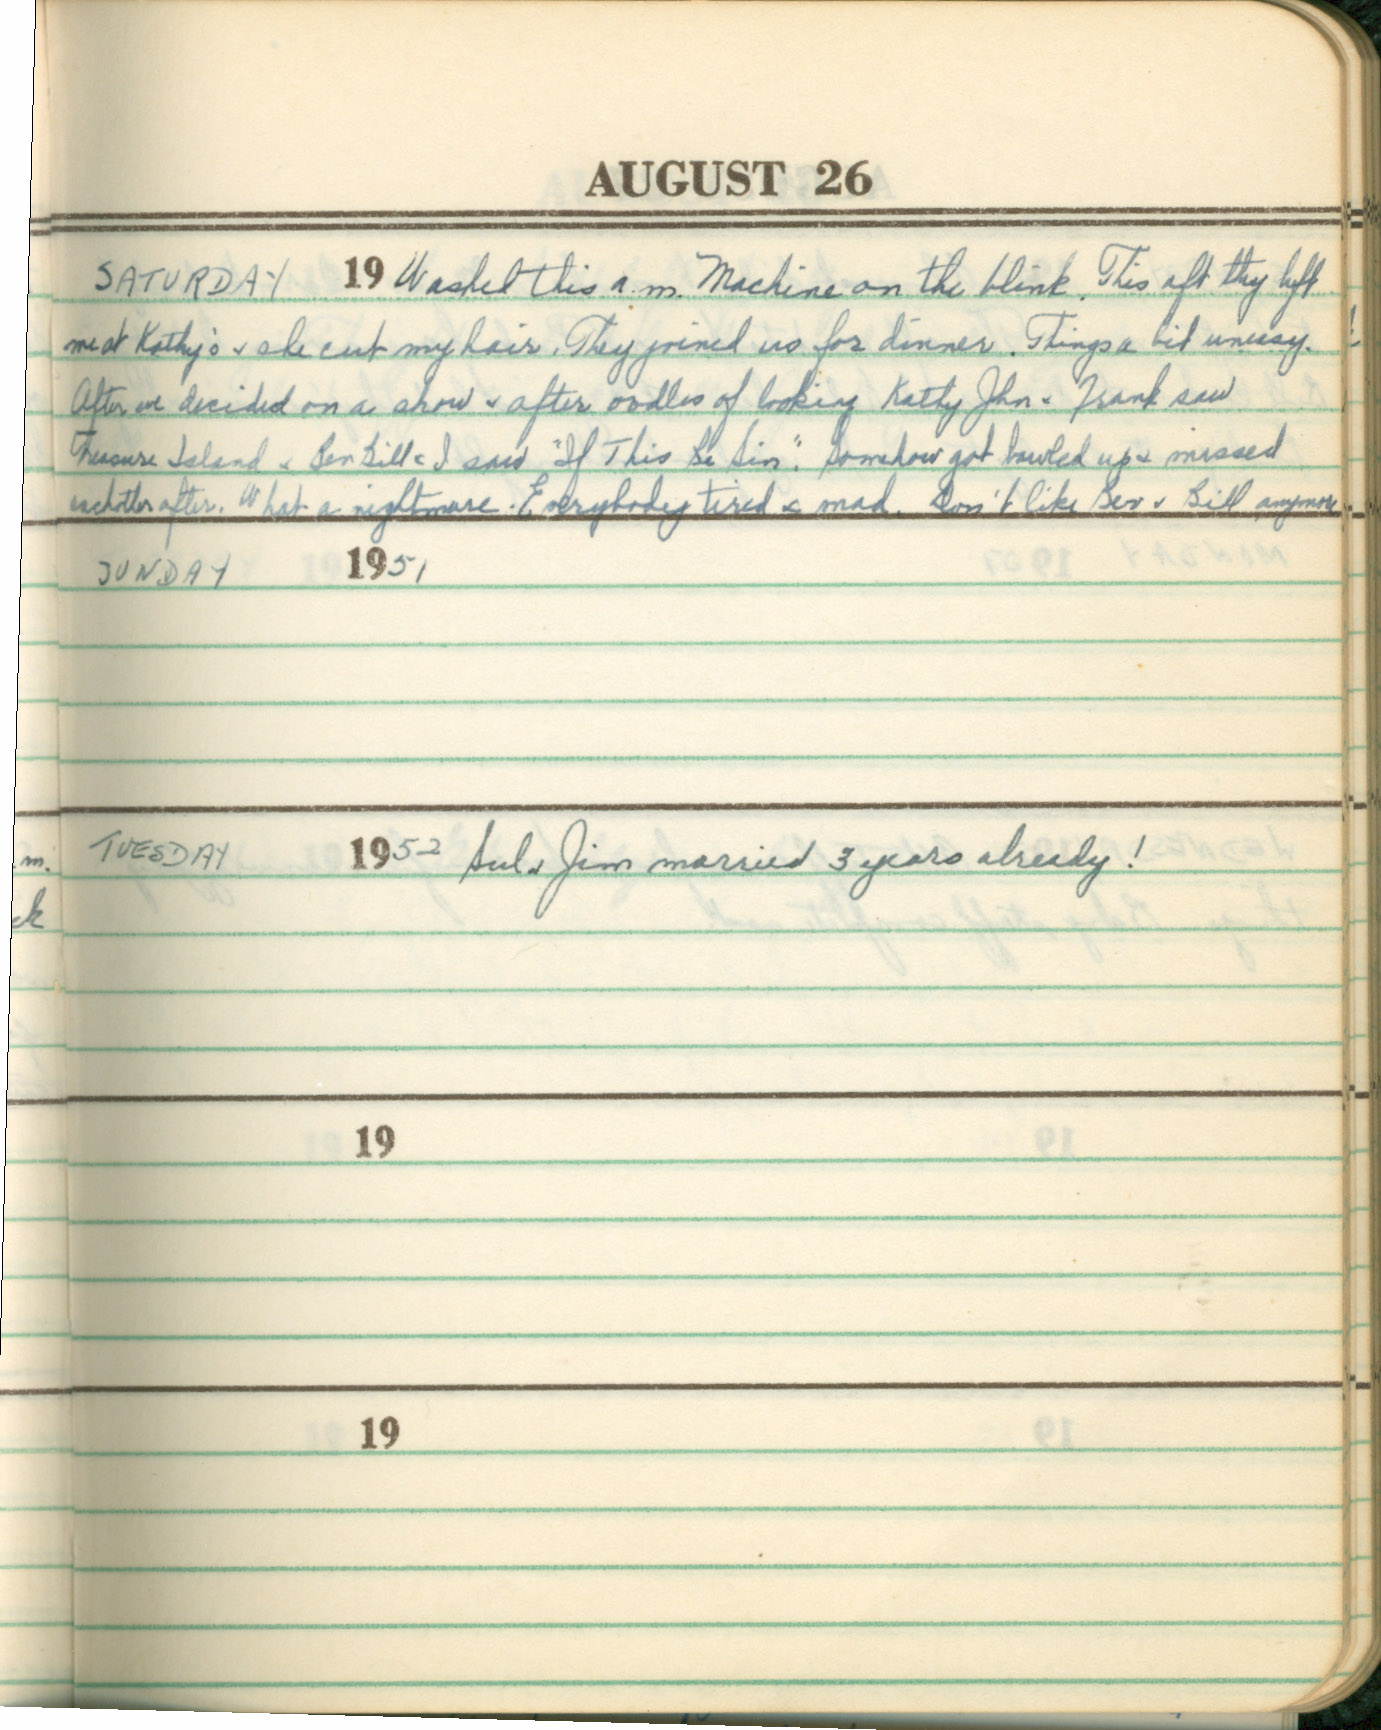 AUGUST 26
SATURDAY 19 Washed this a.m. Machine on the blink. This aft they left
me at Kathy's & she cut my hair. They joined us for dinner. Things a bit uneasy.
After we decided on a show & after oodles of looking Kathy John & Frank saw
Treasure Island & Bev Bill & I saw "If This Be Sin". Somehow got bawled up & missed
eachother after. What a nightmare. Everybody tired & mad. Don't like Bev & Bill anymore.
SUNDAY 1951
TUESDAY 1952 & Jim married 3 years already!
19
19
m.
ck